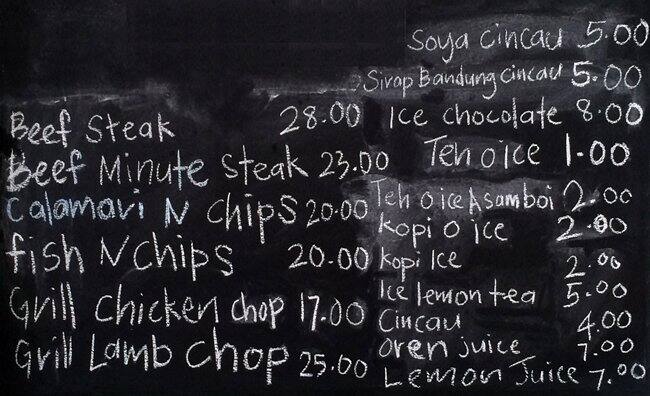 Beef Steak 28.00
Beef Minute Steak 23.00
Calamari N Chips 20.00
fish N Chips 20.00
Grill Chicken Chop 17.00
Grill Lamb Chop 25.00
Soya Cincau 5.00
Sirap Bandung Cincau 5.00
Ice chocolate 8.00
Teh o ice 1.00
Teh o ice Asamboi 2.00
Kopi o ice 2.00
Kopi Ice 2.00
Ice lemon tea 5.00
Cincau 4.00
Oren juice 7.00
Lemon Juice 7.00